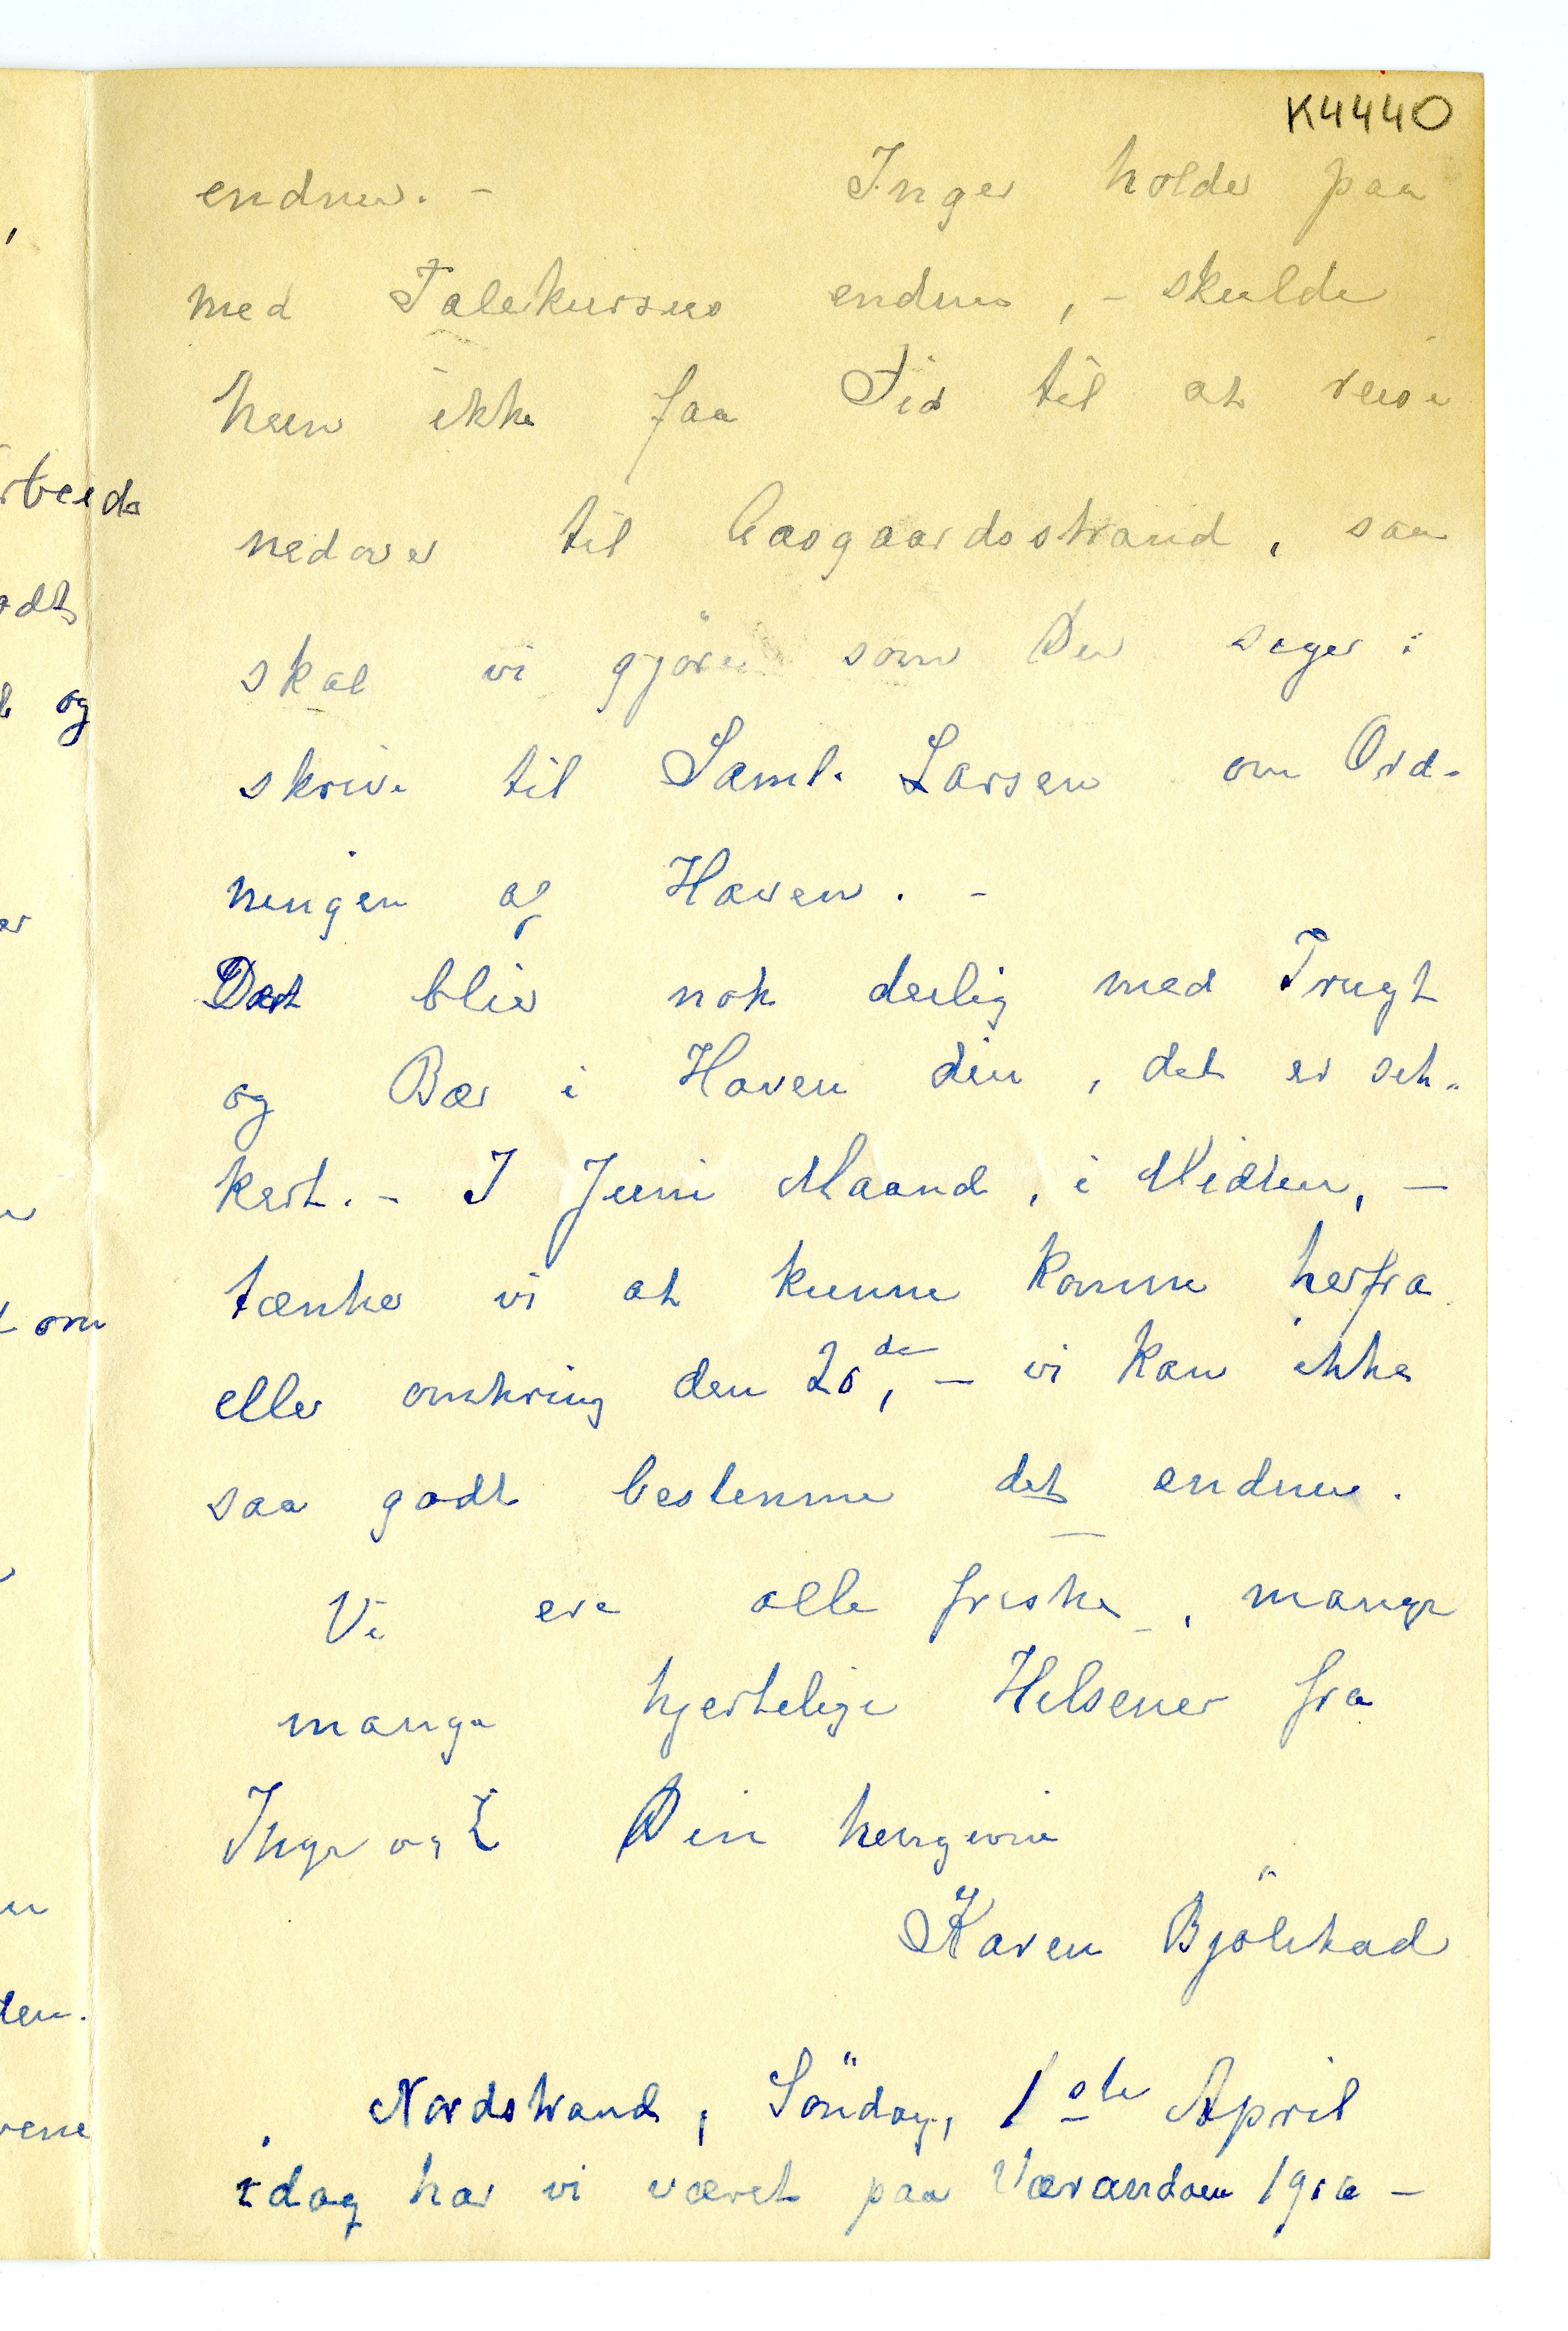 K4440
endnu. – Inger holder paa
med Talekursus endnu, – skulde
hun ikke faa Tid til at reise
nedover til Aasgaardsstrand, saa
skal vi gjöre som Du siger:
skrive til Saml. Larsen om Ord-
ningen af Haven. –
Det blir nok deilig med Frugt
og Bær i Haven din, det er sik-
kert. – I Juni Maaned, i Midten, –
tænker vi at kunne komme herfra
eller omkring den 20de, – vi kan ikke
saa godt bestemme det endnu.
Vi ere alle friske, mange
mange hjertelige Hilsener fra
Inger og Din hengivne
Karen Bjölstad
Nordstrand, Söndag, 1ste April
idag har vi været paa Verandaen
rbeide
odt
og
er
om
en
den.
vene